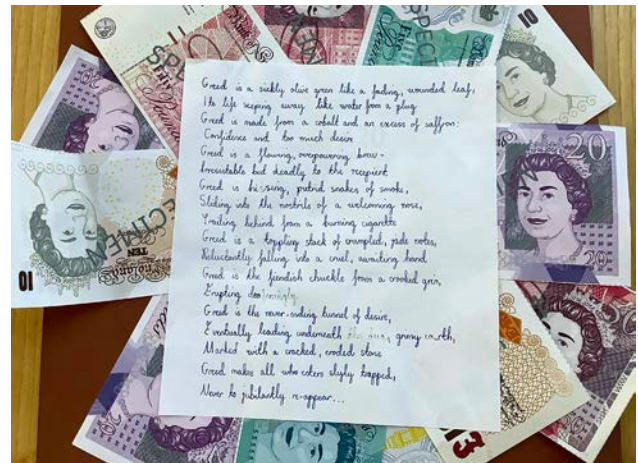 Greed is a sickly olive green like a fading, wounded leaf,
Its life seeping away like water from a plug
Greed is made from a cobalt and an excess of saffron:
Confidence and too much desire
Greed is a flowing, overpowering brew -
Irresistible but deadly to the recipient
Greed is hissing, putrid snakes of smoke,
Sliding into the nostrils of a welcoming nose,
Trailing behind from a burning cigarette
Greed is a toppling stack of crumpled, jade notes,
Reluctantly falling into a cruel, awaiting hand
Greed is the fiendish chuckle from a crooked grin,
Erupting
Greed is the never-ending tunnel of desire,
Eventually leading underneath earth,
Marked with a cracked, eroded stone
Greed makes all who enters slyly trapped,
Never to jubilantly re-appear...
10
SPECIMEN
TEN
10
20
20